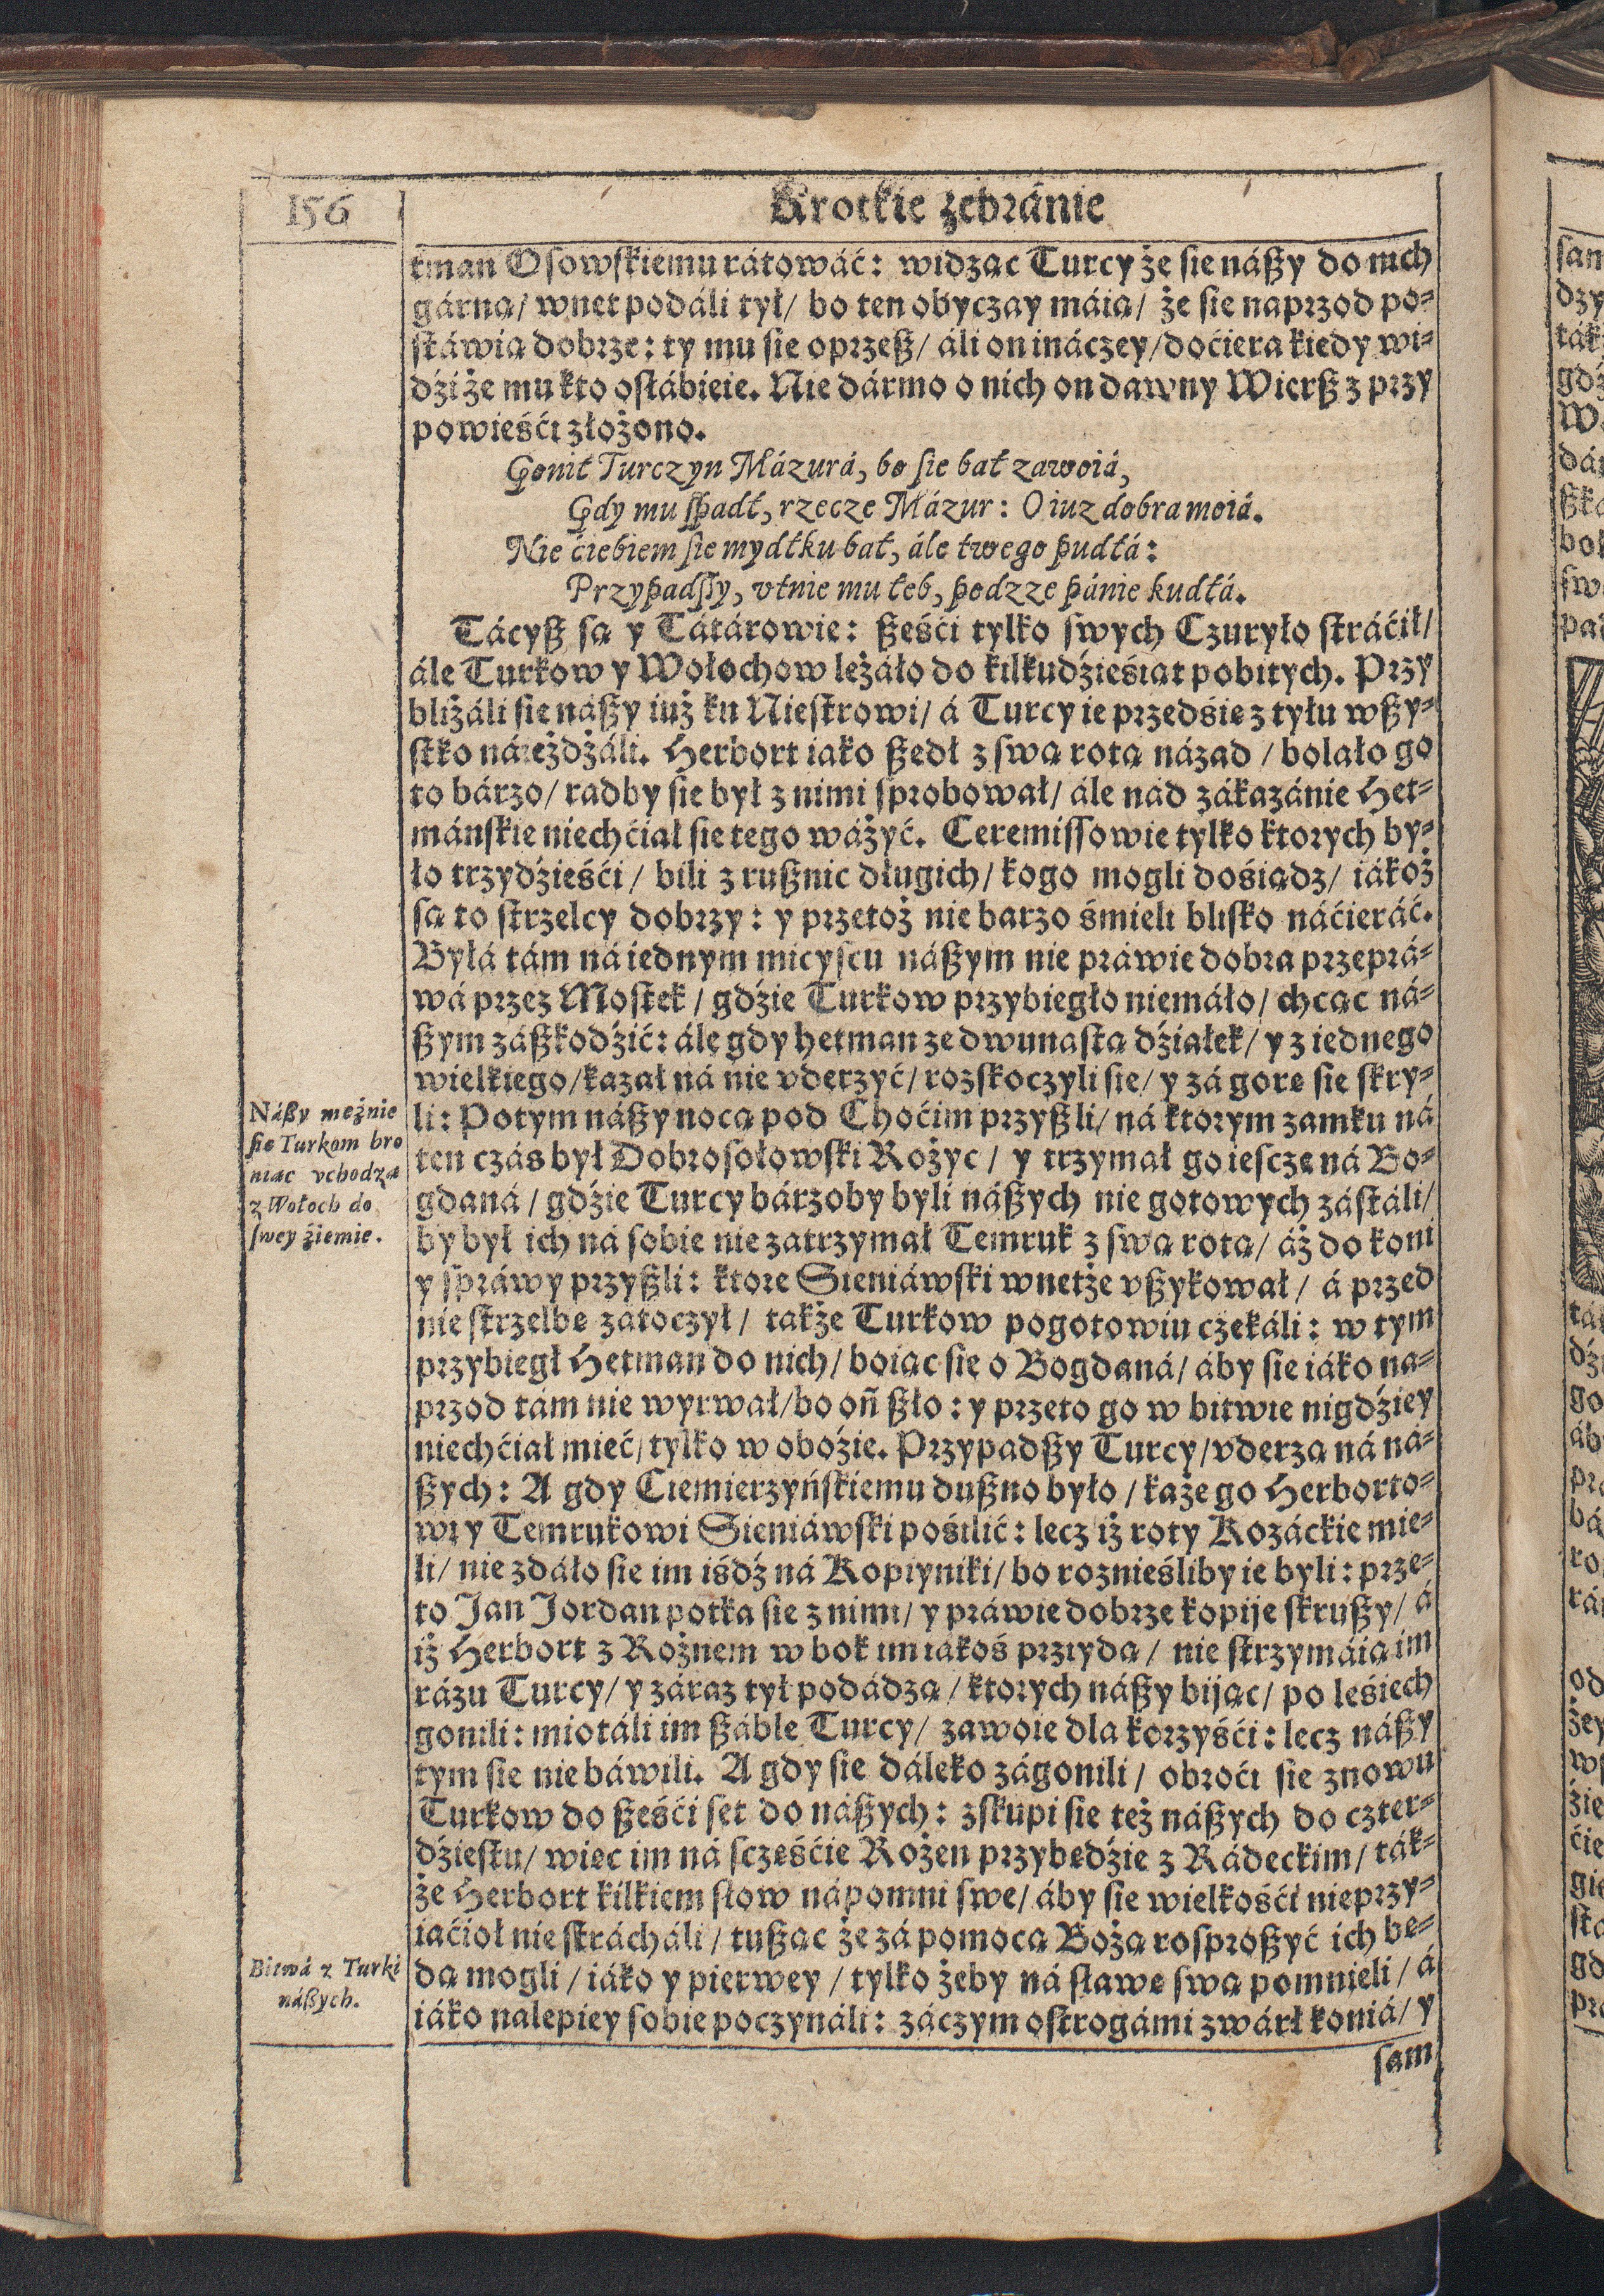 156
Krotkie zebránie
tman Osowskiemu rátowáć: widząc Turcy że sie nászy do nich
gárną/ wnet podáli tył/ bo ten obyczay máią/ że sie naprzod po-
stáwią dobrze: ty mu sie oprzesz/ áli on ináczey/ dociera kiedy wi-
dźi że mu kto osłábieie. Nie dármo o nich on dawny Wiersz z przy
powieśći złożono.
Gonił Turczyn Mázurá, bo sie bał zawoiá,
Gdy mu spadł, rzecze Mázur: O iuz dobra moiá.
Nie ciebiem sie mydłku bał, ále twego pudłá:
Przypadszy, vtnie mu łeb, podzze pánie kudłá.
Tácysz są y Tátárowie: sześći tylko swych Czuryło stráćił/
ále Turkow y Wołochow leżáło do kilkudźieśiąt pobitych. Przy
bliżáli sie nászy iuż ku Niestrowi/ á Turcy ie przedśie z tyłu wszy-
stko náieżdżáli. Herbort iako szedł z swą rotą názad/ bolało go
to bárzo/ radby sie był z nimi sprobował/ ále nád zákazánie Het-
mánskie niechćiał sie tego wáżyć. Ceremissowie tylko ktorych by-
ło trzydźieśći/ bili z rusznic długich/ kogo mogli dośiądz/ iákoż
są to strzelcy dobrzy: y przetoż nie barzo śmieli blisko náćieráć.
Byłá tám ná iednym mieyscu nászym nie práwie dobra przeprá-
wá przez Mostek/ gdźie Turkow przybiegło niemáło/ chcąc ná-
szym zászkodźić: ále gdy hetman ze dwunastą dźiałek/ y z iednego
wielkiego/ kazał ná nie vderzyć/ rozskoczyli sie/ y zá gore sie skry-
li: Potym nászy nocą pod Choćim przyszli/ ná ktorym zamku ná
ten czás był Dobrosołowski Rożyc/ y trzymał go iescze ná Bo-
gdaná/ gdźie Turcy bárzoby byli nászych nie gotowych zástáli/
by był ich ná sobie nie zatrzymał Temruk z swą rotą/ áż do koni
y spráwy przyszli: ktore Sieniáwski wnetże vszykował/ á przed
nie strzelbe zatoczył/ także Turkow pogotowiu cżekáli: w tym
przybiegł Hetman do nich/ boiąc się o Bogdaná/ áby sie iáko na-
przod tám nie wyrwał/ bo oń szło: y przeto go w bitwie nigdźiey
niechćiał mieć/ tylko w oboźie. Przypadszy Turcy/ vderzą ná ná-
szych: A gdy Ciemierzyńskiemu duszno było/ każe go Herborto-
wi y Temrukowi Sieniáwski pośilić: lecz iż roty Kozáckie mie-
li/ nie zdáło sie im iśdź ná Kopiyniki/ bo roznieśliby ie byli: prze-
to Jan Jordan potka sie z nimi/ y práwie dobrze kopije skruszy/ á
iż Herbort z Rożnem w bok im iakoś prziydą/ nie strzymáią im
rázu Turcy/ y záraz tył podádzą/ ktorych nászy bijąc/ po leśiech
gonili: miotáli im száble Turcy/ zawoie dla korzyśći: lecz nászy
tym sie nie báwili. A gdy sie dáleko zágonili/ obroći sie znowu
Turkow do sześći set do nászych: zskupi sie też nászych do czter-
dźiestu/ wiec im ná scześćie Rożen przybedźie z Rádeckim/ ták-
że Herbort kilkiem słow nápomni swe/ áby sie wielkośći nieprzy-
iaćioł nie stráchali/ tusząc że zá pomocą Bożą rosproszyć ich be-
dą mogli/ iáko y pierwey/ tylko żeby ná sławe swą pomnieli/ á
iáko nalepiey sobie poczynáli: záczym ostrogámi zwárł koniá/ y
sam
Nászy meżnie
sie Turkom bro
niąc vchodzą
z Wołoch do
swey źiemie.
Bitwá z Turki
nászych.